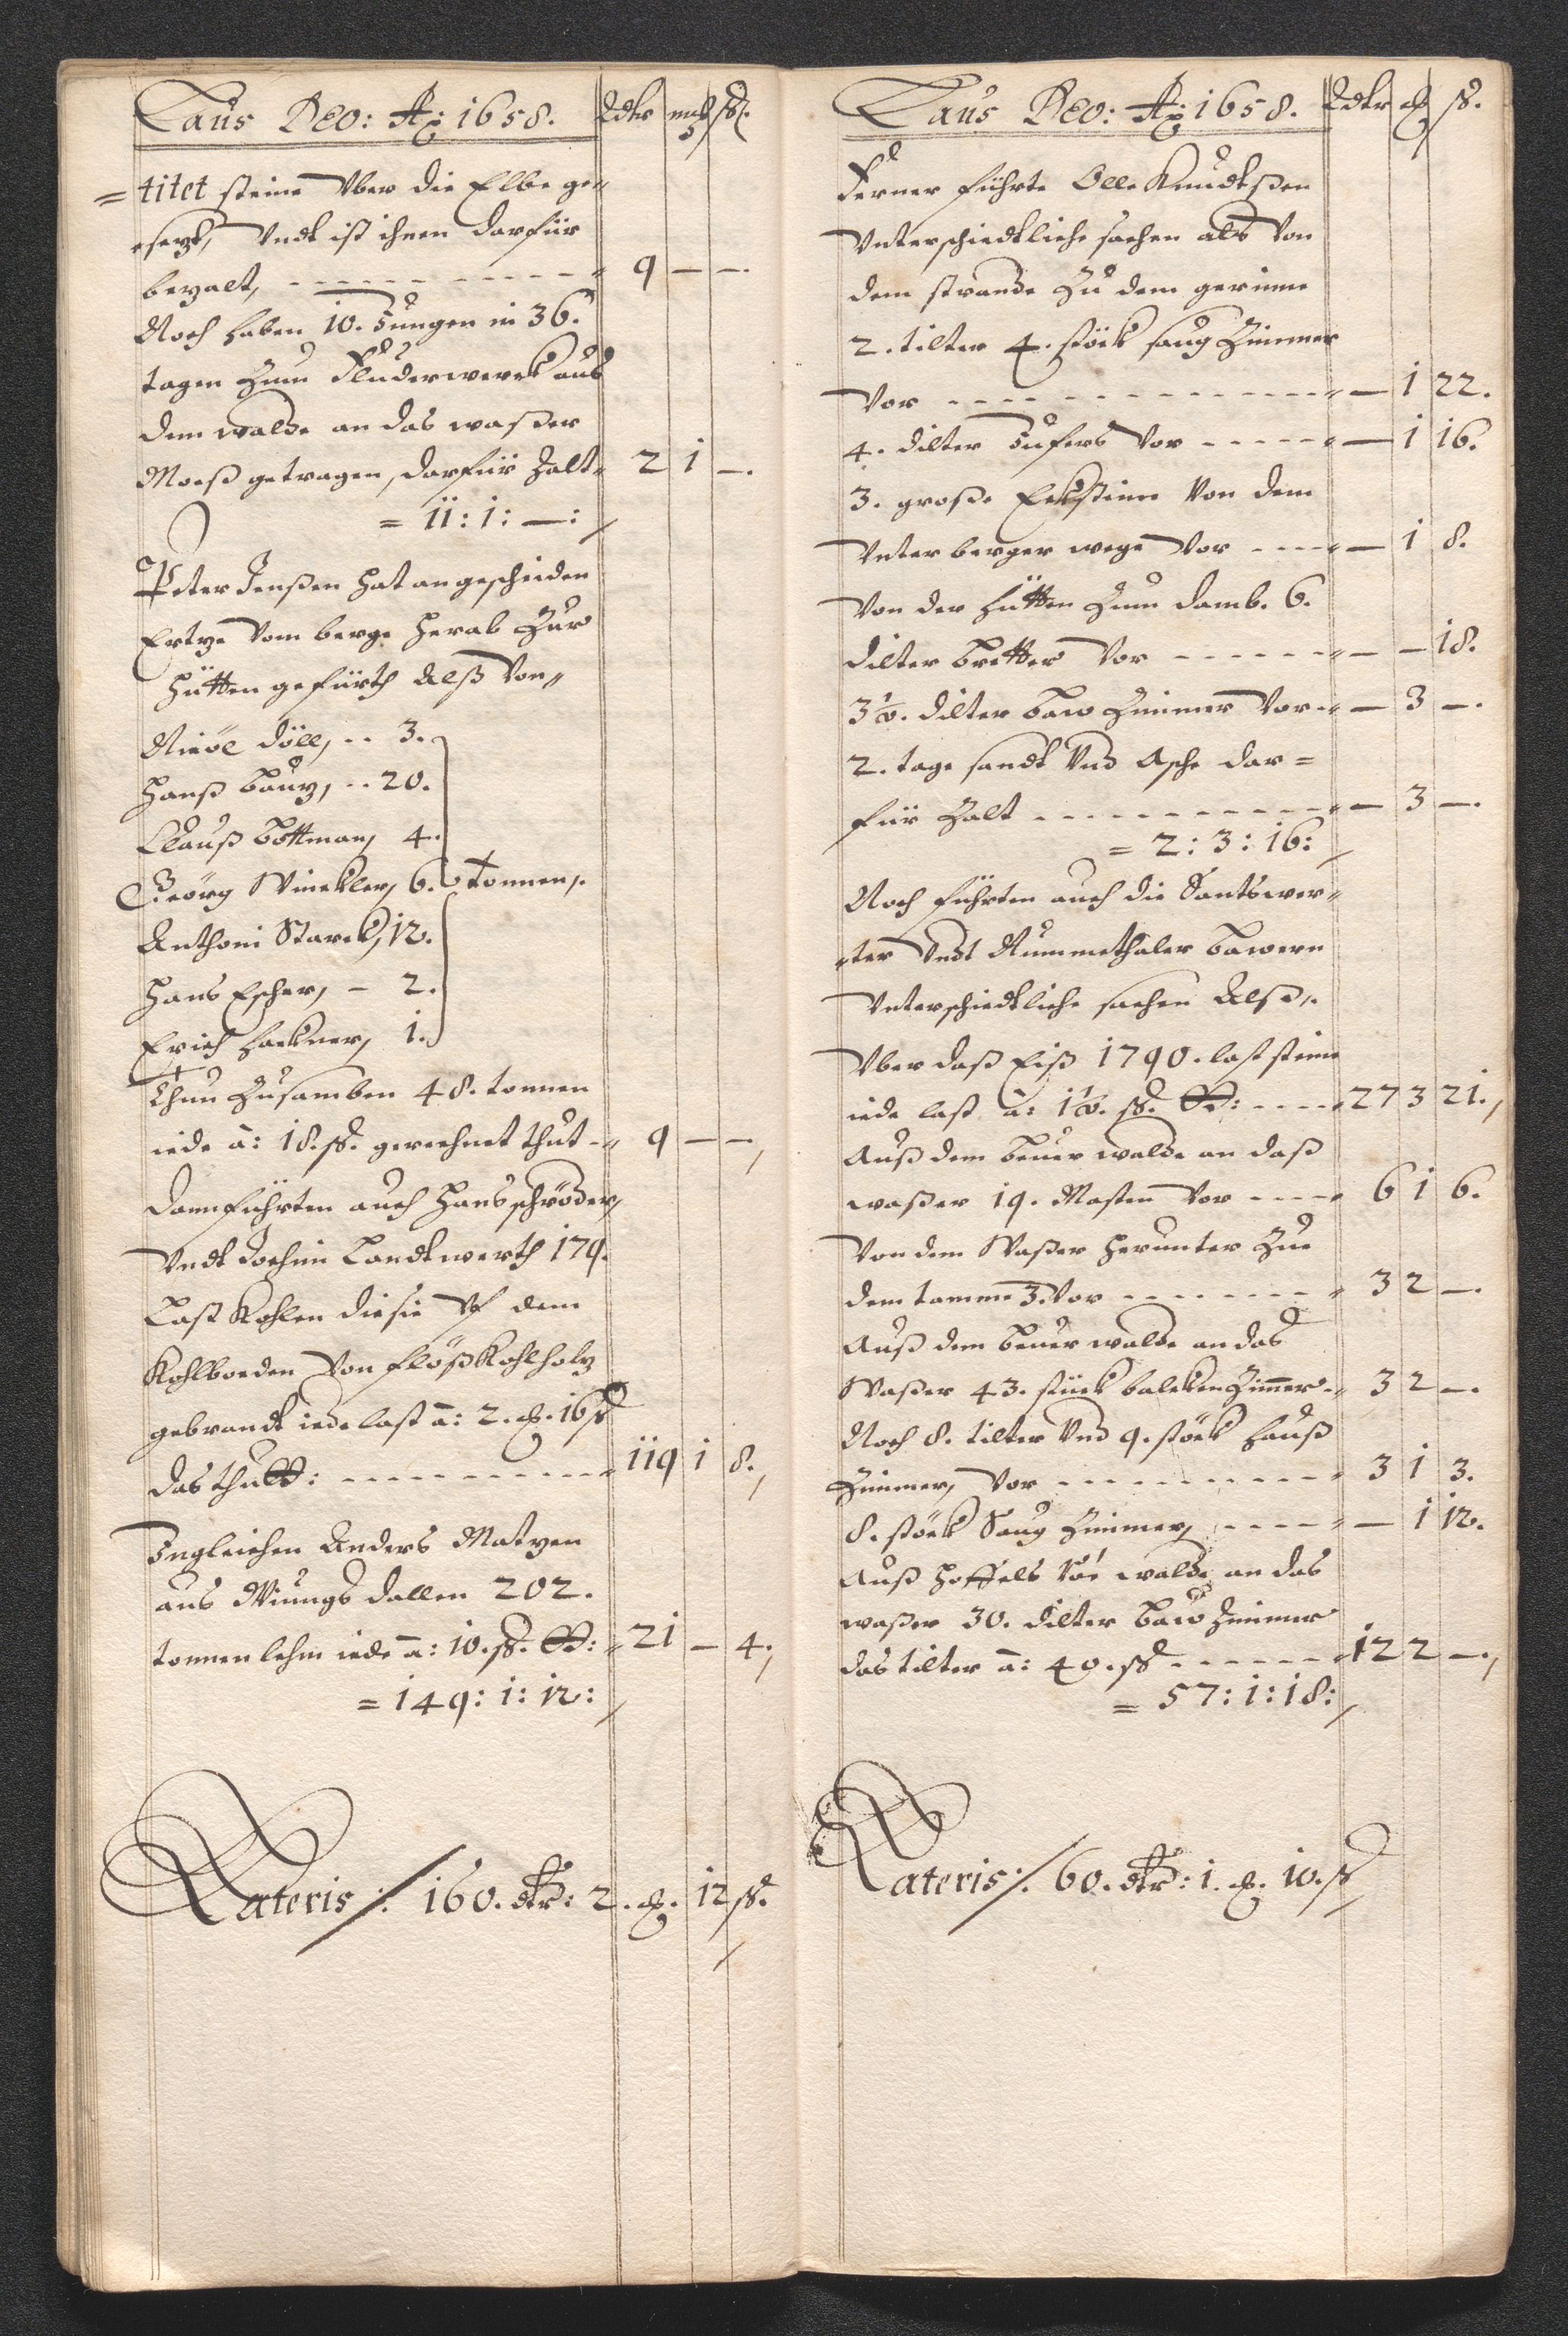 Laus Deo: Aō: 1658. Rdlr mk ß.
=titet steine Vber die Elbe ge=
=setzt, Vndt ist ihnen darfür
bezalt, 9 — —.
Noch haben 10. Jungen in 36.
tagen Zum Fluderwerck aus
dem walde an das waßer
Moeß getragen, darfür Zalt 2 1 —.
= 11: 1: —:
Peter Jenßen hat angescheiden
Ertze Vom berge herab Zur
Hütten geführth Alß Von
döll, 3.
Hanß 20.
Clauß Bottman, 4.
Georg Winckler, 6. tonnen.
Anthoni Starck, 12.
Hans Escher, – 2.
Erich 1.
Thun Zusamben 48. tonnen
iede à: 18. ß. gerechnet thut 9 — —
Dann führten auch Hans schröder,
Vndt Jochim Landtwerth 179.
Last Kohlen die sie Vf dem
Kohlboeden Von flößkohlholtz
gebrandt iede last à: 2. mk. 16 ß
das thutt: 119 1 8.
Ingleichen Anders Matzen
aus dallen 202.
tonnen lehm iede à: 10. ß. 21 — 4.
= 149: 1: 12:
Lateris /: 160. dlr: 2. mk. 12 ß.
Laus Deo: Aō: 1658. Rdlr mk ß.
Ferner führte Olle Knudtßen
Vnterschiedtliche sachen als Von
dem strande Zu dem gerinne
2. tilter 4. stöck saug Zimmer
Vor — 1 22.
4. dilter Vor — 1 16.
3. große Ecksteine Von dem
Vnter berger wege Vor — 1 8.
Von der Hütten Zum damb. 6.
dilter bretter Vor — — 18.
3½. dilter baw Zimmer Vor — 3 —.
2. tage sandt Vnd Asche dar=
für Zalt — 3 —.
= 2: 3: 16:
Noch führten auch die Santswer=
=ter Vndt Nummethaler bawern
Vnterschiedtliche sachen Alß.
Vber daß Eiß 1790. last steine
iede last à: 1½. ß. 27 3 21.
Auß dem walde an daß
waßer 19. Masten Vor 6 1 6.
Von dem Waßer herunter Zue
dem tamme 3. Vor 3 2 —.
Auß dem walde an das
Waßer 43. stück balcken Zimmer 3 2 —.
Noch 8. tilter Vnd 9. stöck hauß
Zimmer, Vor 3 1 3.
8. stöck Saug Zimmer, — 1 12.
Auß walde an das
waßer 30. dilter baw Zimmer
das tilter à: 40. ß 12 2 —.
= 57: 1: 18:
Lateris /: 60. dlr: 1. mk. 10. ß